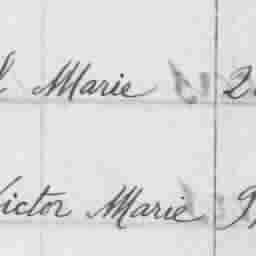 Marie 2
Victor Marie